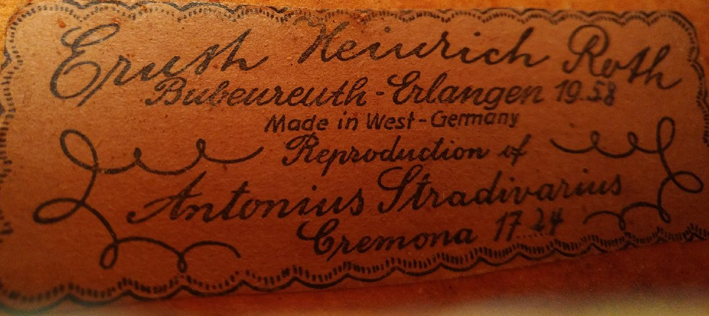 Ernst Heinrich Roth
Bubenreuth-Erlangen 1958
Made in West-Germany
Reproduction of
Antonius Stradivarius
Cremona 1724